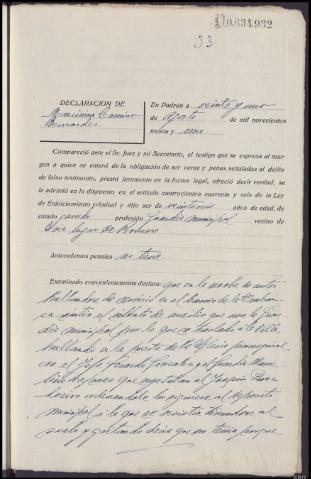 0.634.932
33
DECLARACION DE
Maximino Camino
En Padrón a veinte y uno
de Agosto de mil novecientos
treinta y uno
Compareció ante el Sr. Juez y mi Secretario, el testigo que se expresa al mar-
gen a quien se enteró de la obligación de ser veraz y penas señaladas al delito
de falso testimonio, prestó juramento en la forma legal, ofreció decir verdad, se
le advirtió en lo dispuesto en el artículo cuatrocientos cuarenta y seis de la Ley
de Enjuiciamiento criminal y dijo ser de años de edad, de
estado profesión Guardia municipal vecino de
lugar de
Antecedentes penales no tiene
Examinado convenientemente declara: que en la noche de autos
hallándose de servicio en el barrio de la
sintió el silbato de auxilio que usa la guar-
dia municipal, por lo que se trasladó a la villa
hallando en la puerta de la Iglesia parroquial
con el Jefe Gerardo González y el Guardia
que sujetaban al Joaquín
ordenándole los siguiese al Depósito
municipal a lo que se resistía tirándose al
suelo y gritando decía que no tenía porque